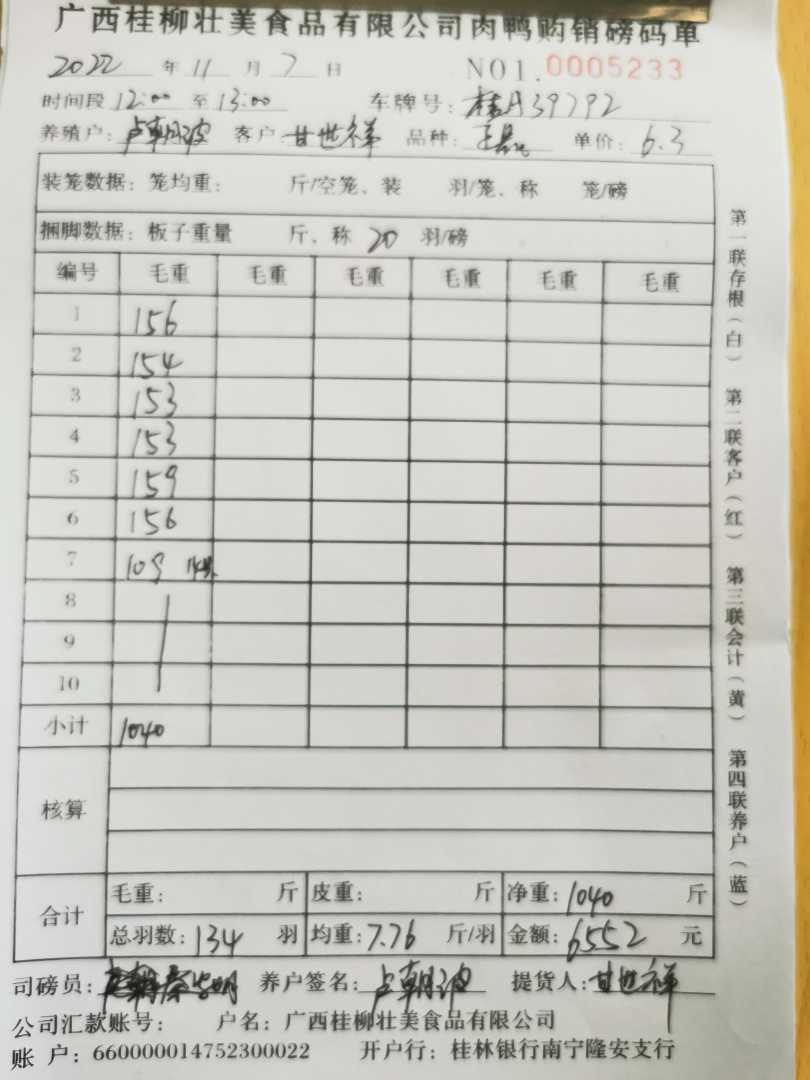 广西桂柳壮美食品有限公司肉鸭购销磅码单
2022 年 11 月 7 日 NO1.0005233
时间段 12:00 至 13:00 车牌号: 桂A39792
养殖户: 卢朝波 客户: 甘世祥 品种: 单价: 6.3
装笼数据: 笼均重: 斤/空笼、装 羽/笼、称 笼/磅
捆脚数据: 板子重量 斤、称 20 羽/磅
编号 毛重 毛重 毛重 毛重 毛重 毛重
1 156
2 154
3 153
4 153
5 159
6 156
7 109 14只
8
9
10
小计 1040
核算
合计
毛重: 斤 皮重: 斤 净重: 1040 斤
总羽数: 134 羽 均重: 7.76 斤/羽 金额: 6552 元
司磅员: 养户签名: 卢朝波 提货人: 甘世祥
公司汇款账号: 户名: 广西桂柳壮美食品有限公司
账 户: 660000014752300022 开户行: 桂林银行南宁隆安支行
第一联存根(白) 第二联客户(红) 第三联会计(黄) 第四联养户(蓝)